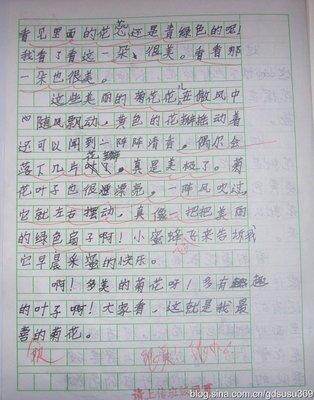 看见里面的花芯还是青绿色的呢!
我看了看这一朵、很美。看看那
一朵也很美。
这些美丽的菊花花在微风中
随风飘动,黄色的花瓣摇动着
还可以闻到一阵阵清香。偶尔会
落下几片花瓣,真是美极了。菊
花叶子也很漂亮,一阵风吹过,
它就左右摆动,真像一把把美丽
的绿色扇子啊!小蜜蜂飞来告诉我
它早晨采蜜的快乐。
啊!多美的菊花呀!多有趣
的叶子啊!大家看,这就是我最
喜的菊花。
blog.sina.com.cn/gdsusu369